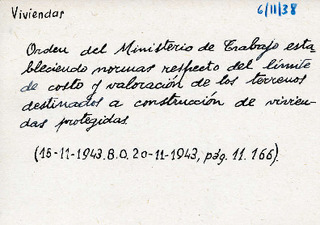 Viviendas
6/11/38
Orden del Ministerio de Trabajo esta
bleciendo normas respecto del límite
de costo y valoración de los terrenos
destinados a construcción de vivien-
das protegidas.
(15-11-1943. B.O. 20-11-1943, pág. 11.166).